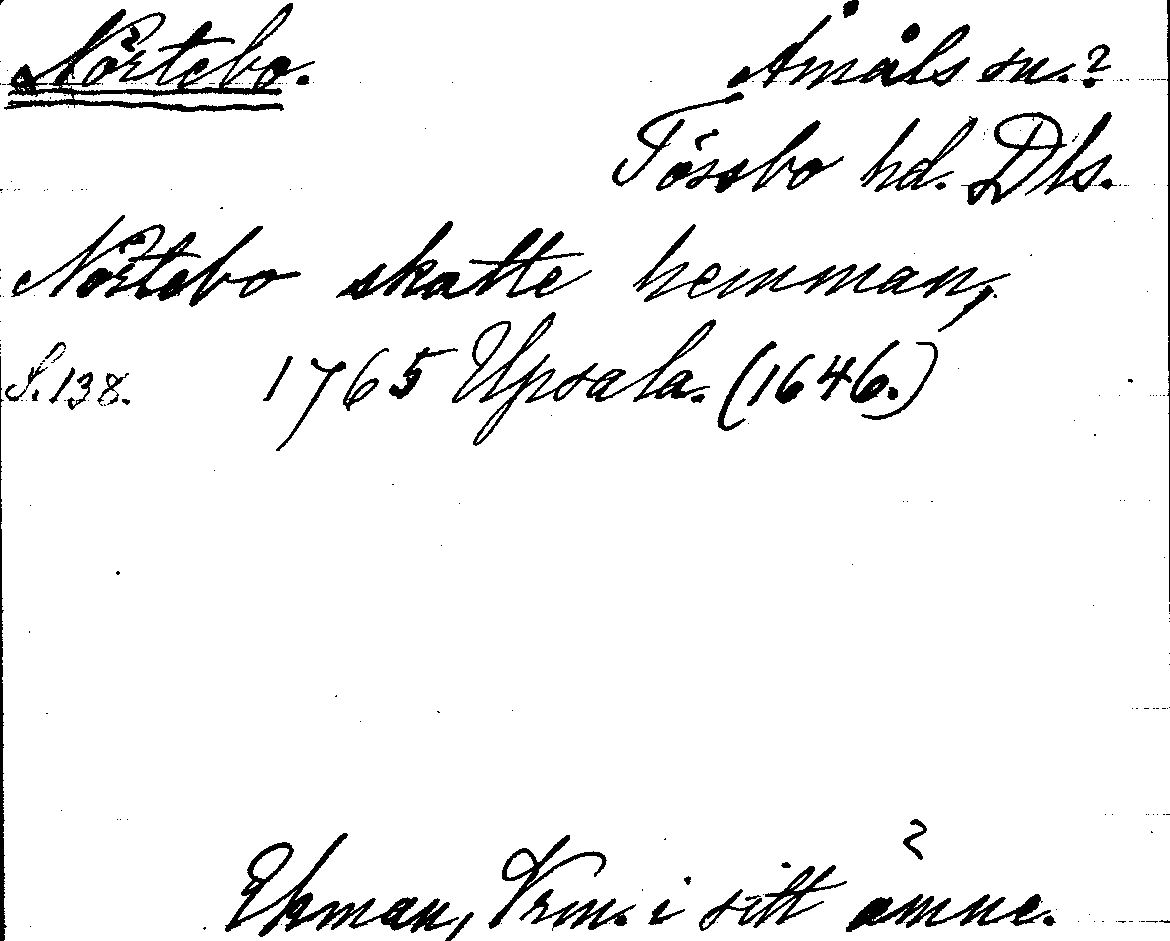 Nörtebo.
Åmåls sn.?
Tössbo hd. Dls.
Nörtebo skatte hemman,
S. 138. 1765 Upsala. (1646.)
Ekman, Vrm. i sitt ämne.